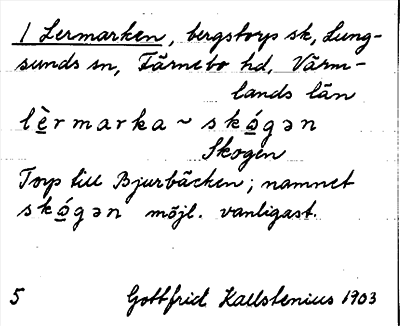 1 Lermarken, bergstorp sk, Lung-
sunds sn, Färnebo hd, Värm-
lands län
lèrmarka ~ skógən
Skogen
Torp till Bjurbäcken; namnet
skógən möjl. vanligast.
5 Gottfrid Kallstenius 1903